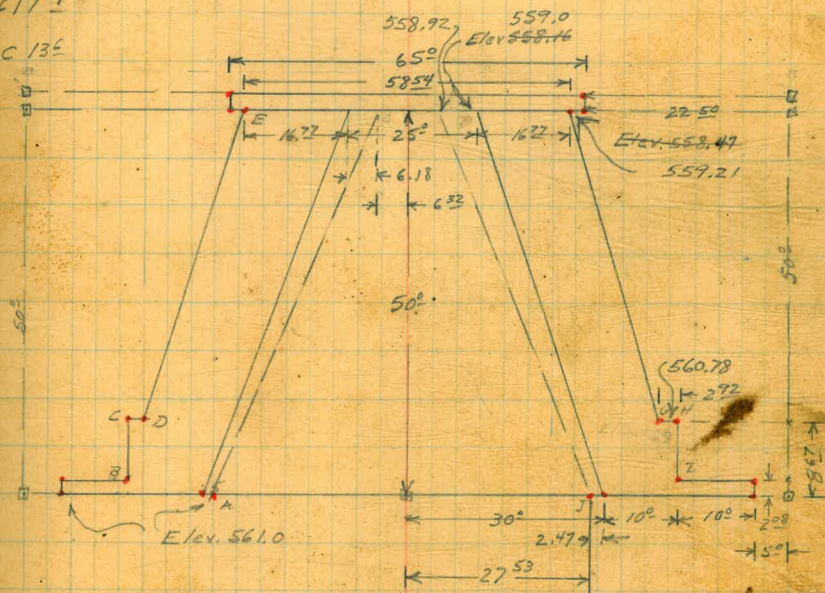 C 13⁶
558.92
559.0
Elev 558.16
65⁰
58⁵⁴
E
22.5⁰
16.⁷⁷
25⁰
16⁷⁷
Elev. 558.47
559.21
6.18
6³²
50⁰
50⁰
50⁰
560.78
2⁹²
C
D
H
B
I
8⁶⁷
A
J
Elev. 561.0
30⁰
10⁰
10⁰
2⁰⁸
2.47
5⁰
27⁵³